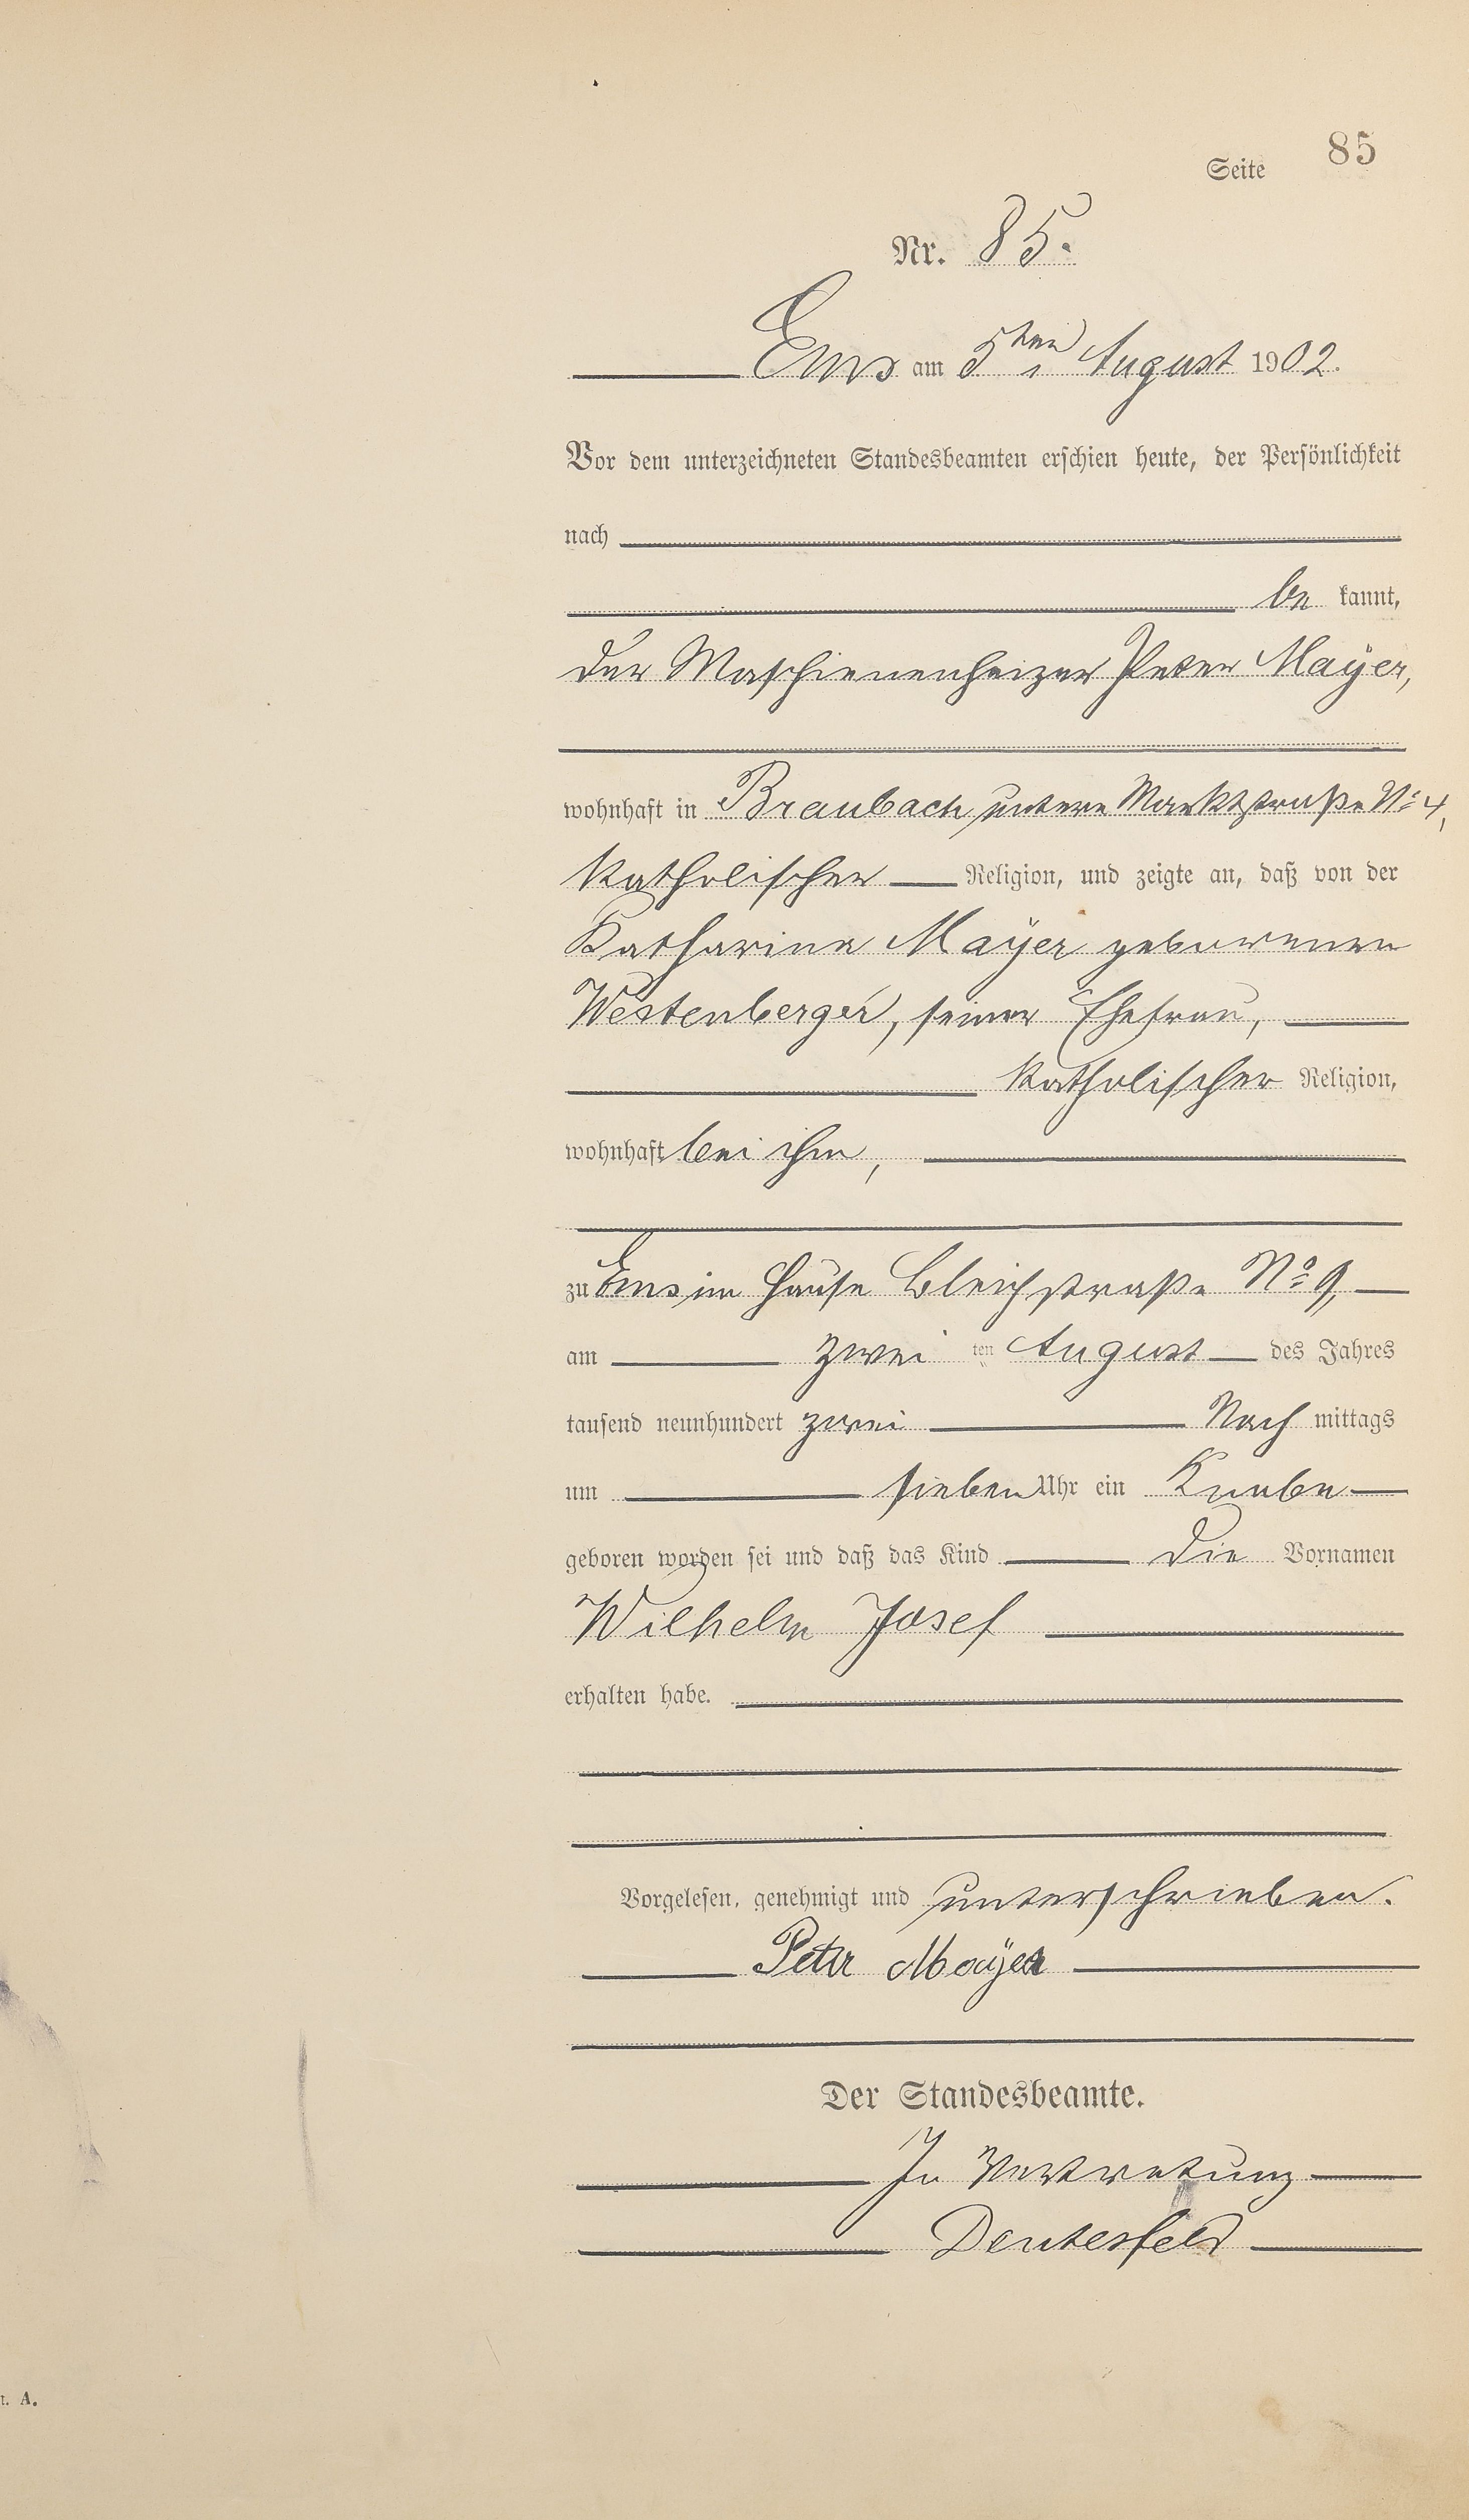 Seite 85
Nr. 85.
Ems am 5ten August 1902.
Vor dem unterzeichneten Standesbeamten erschien heute, der Persönlichkeit
nach
be kannt,
der Maschienenheizer Peter Mayer,
wohnhaft in Braubach untere Marktstraße No 4,
katholischer Religion, und zeigte an, daß von der
Katharina Mayer geborenen
Westenberger, seiner Ehefrau,
katholischer Religion,
wohnhaft bei ihm,
zu Ems im Hause Bleichstraße No 9,
am zwei ten August des Jahres
tausend neunhundert zwei Nach mittags
um sieben Uhr ein Knabe
geboren worden sei und daß das Kind die Vornamen
Wilhelm Josef
erhalten habe.
Vorgelesen, genehmigt und unterschrieben.
Peter Mayer
Der Standesbeamte.
In Vertretung
Deutesfeld
t. A.